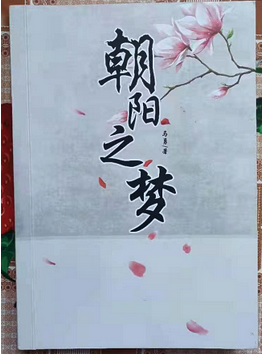 朝阳之梦
马勇/著